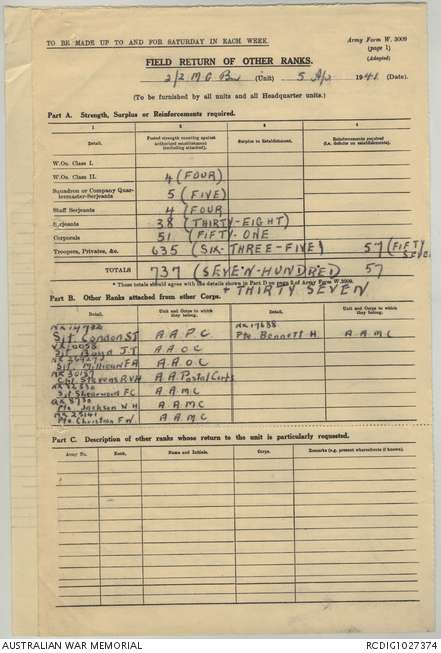 TO BE MADE UP TO AND FOR SATURDAY IN EACH WEEK.
Army Form W. 3009
(page 1)
(Adapted)
FIELD RETURN OF OTHER RANKS.
2/2 M G Bn (Unit) 5 Apl 1941 (Date).
(To be furnished by all units and all Headquarter units.)
Part A. Strength, Surplus or Reinforcements required.
Detail.
Posted strength counting against authorized establishment (excluding attached).
Surplus to Establishment.
Reinforcements required (i.e. deficits on establishment).
W.Os. Class I.
W.Os. Class II. 4 (FOUR)
Squadron or Company Quartermaster-Serjeants 5 (FIVE)
Staff Serjeants 4 (FOUR
Serjeants 38 (THIRTY-EIGHT)
Corporals 51 (FIFTY-ONE
Troopers, Privates, &c. 635 (SIX-THREE-FIVE) 57 (FIFTY SEVEN
TOTALS 737 (SEVEN-HUNDRED 57
+ THIRTY SEVEN
* Those totals should agree with the details shown in Part D on page 2 of Army Form W.3009.
Part B. Other Ranks attached from other Corps.
Detail.
Unit and Corps to which they belong.
Detail.
Unit and Corps to which they belong.
Sjt. London S J A A P C.
Pte. Bennett H. A A M C
Sjt. Boyd J.T. A A O C
Sjt. Milligan F A A A O C.
Cpl. Stevens R V H A A Postal Corps
Sjt Sherwood F C A A M C
Pte. Jackson N H A A M C
Pte. Christian F W. A A M C
Part C. Description of other ranks whose return to the unit is particularly requested.
Army No.
Rank.
Name and Initials.
Corps.
Remarks (e.g. present whereabouts if known).
AUSTRALIAN WAR MEMORIAL
RCDIG1027374